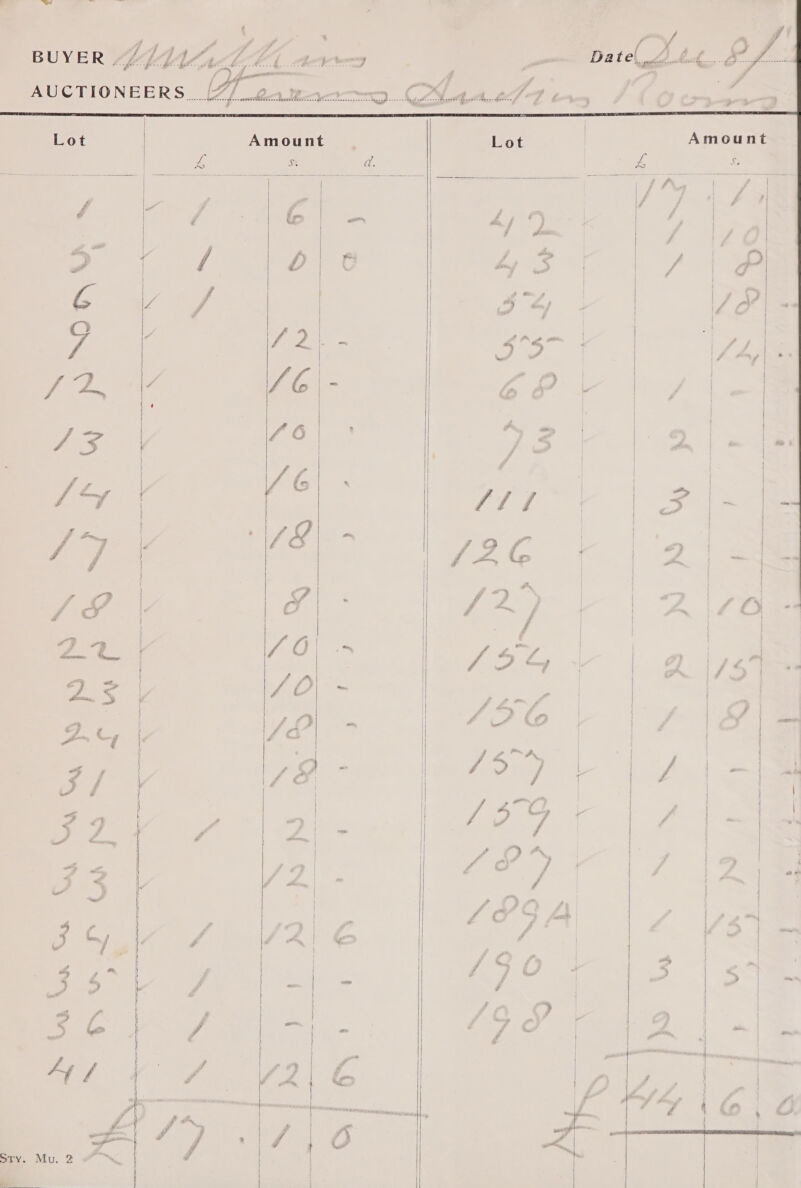 BUYER Williams Date Dec 8/
AUCTIONEERS Auction Rooms
Lot Amount Lot Amount
£ s. d. £ s.
17 . 1 ,
1 - 1 6 - 42 - 1 10
5 - 1 0 0 43 - 1 8
6 - 1 54 - 18 -
9 - 12 - 55 - 14 -
12 - 16 - 68 - 1 -
13 - 10 - 73 - 2 - -
14 - 16 - 111 - 3 - -
17 - 18 - 126 - 2 - -
18 - 8 - 127 - 2 10 -
22 - 10 - 154 - 2 15 -
23 - 10 - 156 - 1 8 -
24 - 18 - 157 - 1 - -
31 - 18 - 159 - 1 - -
32 - 1 2 - 187 - 1 2 -
33 - 12 - 189A 1 15 -
34 - 1 12 6 190 - 3 5 -
35 - 1 - - 198 - 2 - -
36 - 1 - -
41 - 1 12 6 £ 44 . 6 . 0
£ 17 . 1 . 0
Sty. Mu. 2